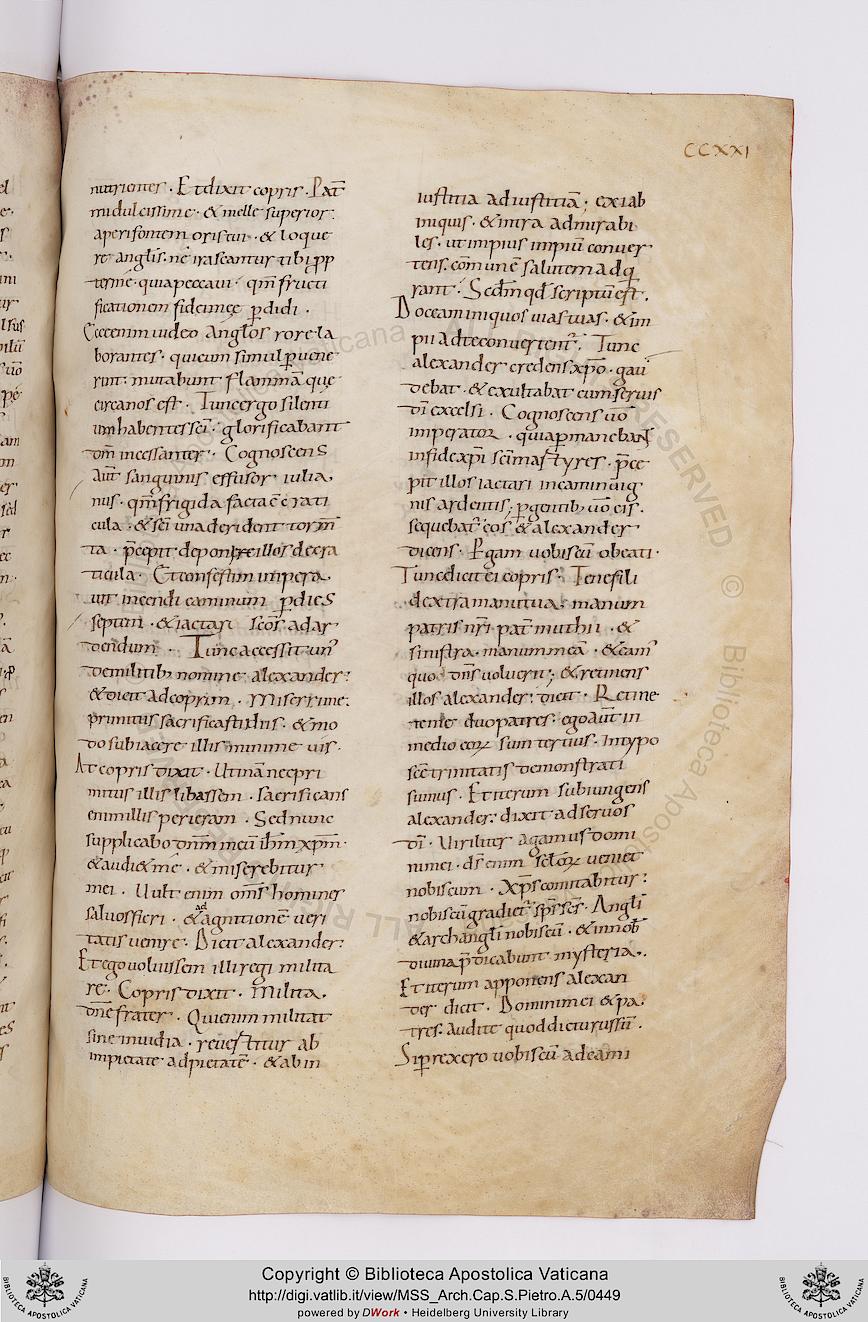 CCXXI
nutrientes . Et dixit copris . Pat̄
mi dulcissime . & melle superior .
aperi fontem oris tui . & loque
re angl̄is . ne irascantur tibi ꝓp
ter me . quia peccavi . qm̄ fructi
ficationem fidei meę ꝑdidi .
Ecce enim video angl̄os rore la
borantes . qui cum simul ꝑvene
rint . mutabunt flammā que
circa nos est . Tunc ergo silenti
um habentes sc̄i . glorificabant
dm̄ incessanter . Cognoscens
aut̄ sanguinis effusor iulia,
nus . qm̄ frigida facta ē crati
cula . & sc̄i una derident torm̄
ta . p̄cepit deponi illos de cra
ticula . Et confestim impera,
vit incendi caminum ꝑ dies
septem . & iactari sc̄os ad ar
dendum . Tunc accessit un'
de militib; nomine alexander .
& dicit ad coprim . Miserrime .
primitus sacrificasti diis . & mo
do subiacere illis minime vis .
At copris dixit . Utinā nec pri
mitus illis libassem . sacrificans
enim illis perieram . Sed nunc
supplicabo dnm̄ meū ihm̄ xpm̄ .
& audi& me . & miserebitur
mei . Vult enim om̄s homines
salvos fieri . & ad agnitionē veri
tatis venire . Dicit alexander .
Et ego voluissem illi regi milita
re . Copris dixit . Milita,
dn̄e frater . Qui enim militat
sine invidia . revestitur ab
impietate ad pietatē . & ab in
iustitia ad iustitiā . ex iab
iniquis . & intra admirabi
les . ut impius impiū conver
tens . com̄unē salutem adq̄
rant . Scdm̄ qd̄ scriptū est .
Doceam iniquos vias tuas . & im
pii ad te convertent̄ . Tunc
alexander credens xp̄o . gau
debat . & exultabat cum servis
dī excelsi . Cognoscens v̄o
imperator . quia ꝑmanebant
in fide xp̄i sc̄i martyres . p̄ce
pit illos iactari in caminū ig
nis ardentis . ꝑgentib; v̄o eis .
sequebat̄ eos & alexander
dicens . Pgam vobiscū o beati .
Tunc dicit ei copris . Tene fili
dextra manu tua . manum
patris nr̄i pat̄ muthii . &
sinistra . manum meā . & eam'
quo dn̄s voluerit . & retinens
illos alexander . dicit . Retine
te me duo patres . ego aut̄ in
medio eoꝝ sum tertius . In typo
sc̄e trinitatis demonstrati
sumus . Et iterum subiungens
alexander . dixit ad servos
dī . Viriliter agamus domi
ni mei . ds̄ enim sc̄l̄oꝝ veniet
nobiscum . Xp̄s comitabitur .
nobiscū gradiet̄ sp̄s sc̄s . Angl̄i
& archangl̄i nobiscū . & in nob̄
divina p̄dicabunt mysteria .
Et iterum apponens alexan
der dicit . Domini mei & pa,
tres . audite quod dicturus sū .
Si ꝑrexero vobiscū ad eam i
Copyright © Biblioteca Apostolica Vaticana
http://digi.vatlib.it/view/MSS_Arch.Cap.S.Pietro.A.5/0449
powered by DWork • Heidelberg University Library